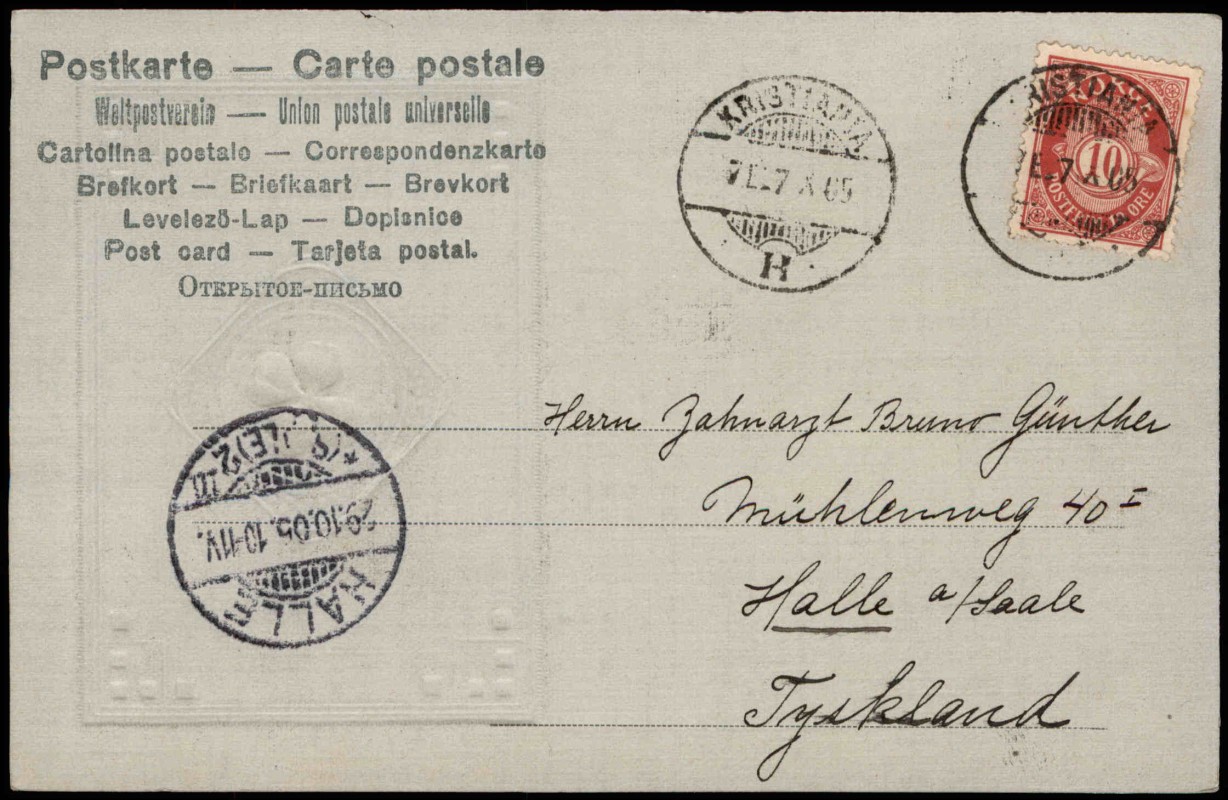 Postkarte — Carte postale
Weltpostverein — Union postale universelle
Cartolina postale — Correspondenzkarte
Brefkort — Briefkaart — Brevkort
Levelező-Lap — Dopisnice
Post card — Tarjeta postal.
Открытое-письмо
KRISTIANIA
7 X 05
H
KRISTIANIA
7 X 05
NORGE
10
POSTFRIM. ØRE
Herrn Zahnarzt Bruno Günther
Mühlenweg 40 I
Halle a/Saale
Tyskland
HALLE
29.10.05. 10-11V.